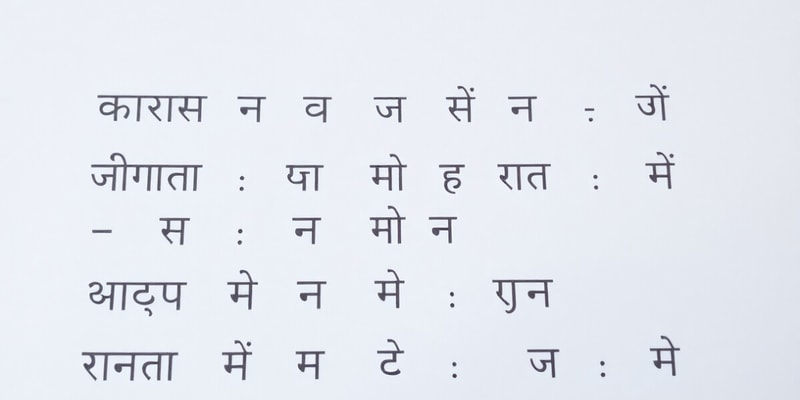 कारास न व ज सें न :
जीगाता : या मो ह रात : में
– स : न मो न
मे न मे :
रानता में म टे : ज : मे